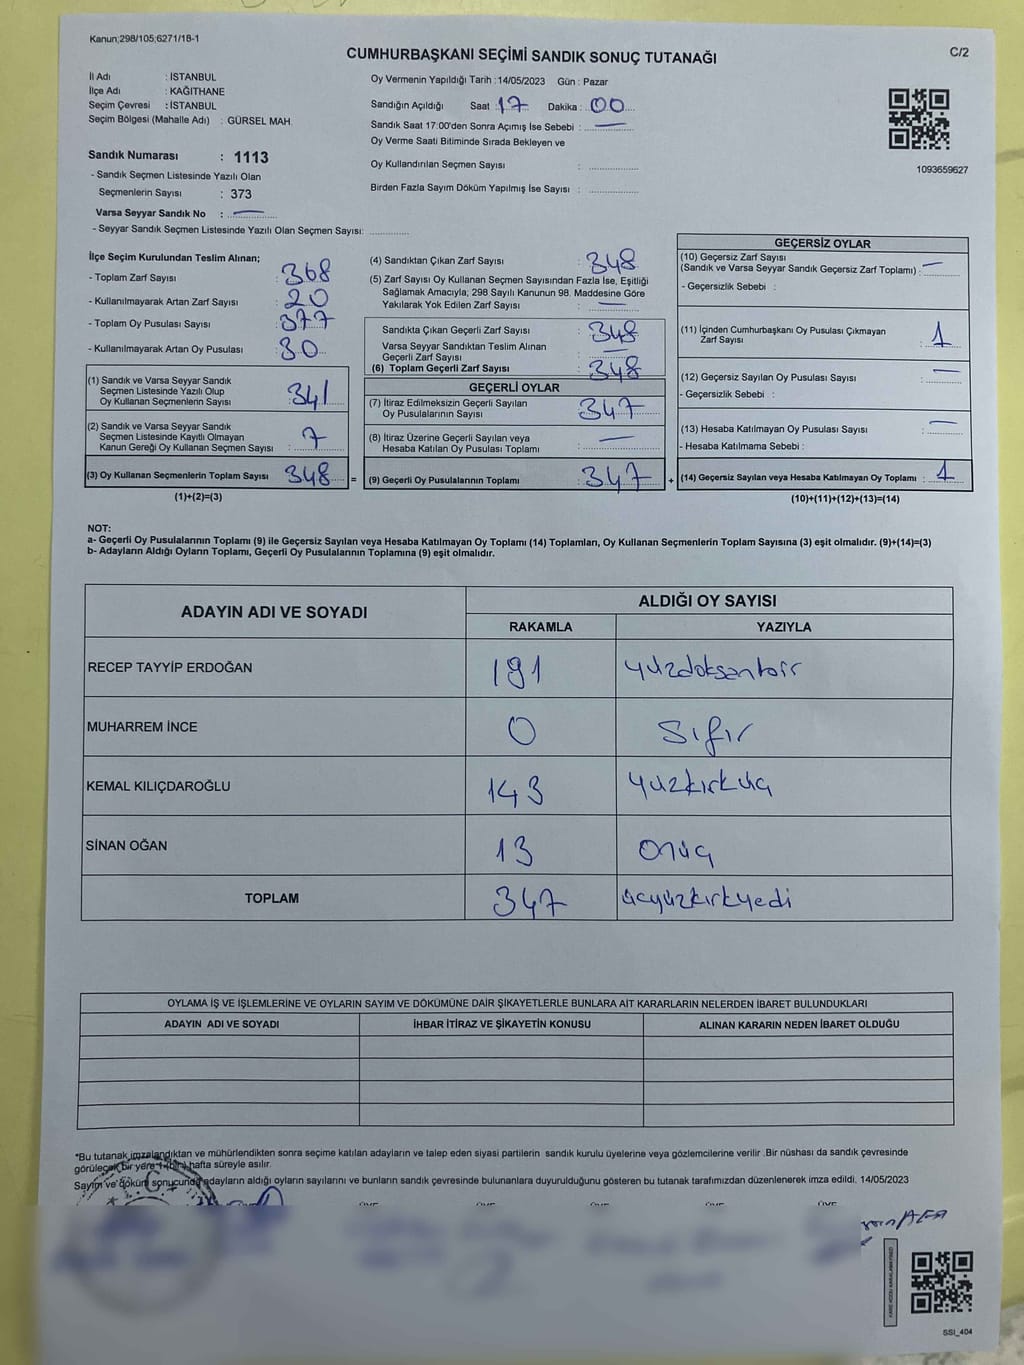 Kanun;298/105;6271/18-1
CUMHURBAŞKANI SEÇİMİ SANDIK SONUÇ TUTANAĞI
C/2
İl Adı : İSTANBUL
İlçe Adı : KAĞITHANE
Seçim Çevresi : İSTANBUL
Seçim Bölgesi (Mahalle Adı) : GÜRSEL MAH.
Sandık Numarası : 1113
- Sandık Seçmen Listesinde Yazılı Olan
Seçmenlerin Sayısı : 373
Varsa Seyyar Sandık No : —
- Seyyar Sandık Seçmen Listesinde Yazılı Olan Seçmen Sayısı: ............
Oy Vermenin Yapıldığı Tarih : 14/05/2023 Gün : Pazar
Sandığın Açıldığı Saat : 17 Dakika : 00
Sandık Saat 17:00'den Sonra Açımış İse Sebebi : —
Oy Verme Saati Bitiminde Sırada Bekleyen ve
Oy Kullandırılan Seçmen Sayısı : ..............
Birden Fazla Sayım Döküm Yapılmış İse Sayısı : ..............
1093659627
İlçe Seçim Kurulundan Teslim Alınan;
- Toplam Zarf Sayısı : 368
- Kullanılmayarak Artan Zarf Sayısı : 20
- Toplam Oy Pusulası Sayısı : 377
- Kullanılmayarak Artan Oy Pusulası : 30
(1) Sandık ve Varsa Seyyar Sandık
Seçmen Listesinde Yazılı Olup
Oy Kullanan Seçmenlerin Sayısı : 341
(2) Sandık ve Varsa Seyyar Sandık
Seçmen Listesinde Kayıtlı Olmayan
Kanun Gereği Oy Kullanan Seçmen Sayısı : 7
(3) Oy Kullanan Seçmenlerin Toplam Sayısı : 348 =
(1)+(2)=(3)
(4) Sandıktan Çıkan Zarf Sayısı : 348
(5) Zarf Sayısı Oy Kullanan Seçmen Sayısından Fazla İse, Eşitliği
Sağlamak Amacıyla, 298 Sayılı Kanunun 98. Maddesine Göre
Yakılarak Yok Edilen Zarf Sayısı : —
Sandıkta Çıkan Geçerli Zarf Sayısı : 348
Varsa Seyyar Sandıktan Teslim Alınan
Geçerli Zarf Sayısı : —
(6) Toplam Geçerli Zarf Sayısı : 348
GEÇERLİ OYLAR
(7) İtiraz Edilmeksizin Geçerli Sayılan
Oy Pusulalarının Sayısı : 347
(8) İtiraz Üzerine Geçerli Sayılan veya
Hesaba Katılan Oy Pusulası Toplamı : —
(9) Geçerli Oy Pusulalarının Toplamı : 347 +
GEÇERSİZ OYLAR
(10) Geçersiz Zarf Sayısı
(Sandık ve Varsa Seyyar Sandık Geçersiz Zarf Toplamı) : —
- Geçersizlik Sebebi :
(11) İçinden Cumhurbaşkanı Oy Pusulası Çıkmayan
Zarf Sayısı : 1
(12) Geçersiz Sayılan Oy Pusulası Sayısı : —
- Geçersizlik Sebebi :
(13) Hesaba Katılmayan Oy Pusulası Sayısı : —
- Hesaba Katılmama Sebebi :
(14) Geçersiz Sayılan veya Hesaba Katılmayan Oy Toplamı : 1
(10)+(11)+(12)+(13)=(14)
NOT:
a- Geçerli Oy Pusulalarının Toplamı (9) ile Geçersiz Sayılan veya Hesaba Katılmayan Oy Toplamı (14) Toplamları, Oy Kullanan Seçmenlerin Toplam Sayısına (3) eşit olmalıdır. (9)+(14)=(3)
b- Adayların Aldığı Oyların Toplamı, Geçerli Oy Pusulalarının Toplamına (9) eşit olmalıdır.
ADAYIN ADI VE SOYADI ALDIĞI OY SAYISI
RAKAMLA YAZIYLA
RECEP TAYYİP ERDOĞAN 191 yüzdoksanbir
MUHARREM İNCE 0 sıfır
KEMAL KILIÇDAROĞLU 143 yüzkırküç
SİNAN OĞAN 13 onüç
TOPLAM 347 üçyüzkırkyedi
OYLAMA İŞ VE İŞLEMLERİNE VE OYLARIN SAYIM VE DÖKÜMÜNE DAİR ŞİKAYETLERLE BUNLARA AİT KARARLARIN NELERDEN İBARET BULUNDUKLARI
ADAYIN ADI VE SOYADI İHBAR İTİRAZ VE ŞİKAYETİN KONUSU ALINAN KARARIN NEDEN İBARET OLDUĞU
*Bu tutanak imzalandıktan ve mühürlendikten sonra seçime katılan adayların ve talep eden siyasi partilerin sandık kurulu üyelerine veya gözlemcilerine verilir .Bir nüshası da sandık çevresinde
görülecek bir yere 1 (bir) hafta süreyle asılır.
Sayım ve döküm sonucunda adayların aldığı oyların sayılarını ve bunların sandık çevresinde bulunanlara duyurulduğunu gösteren bu tutanak tarafımızdan düzenlenerek imza edildi. 14/05/2023
SSI_404